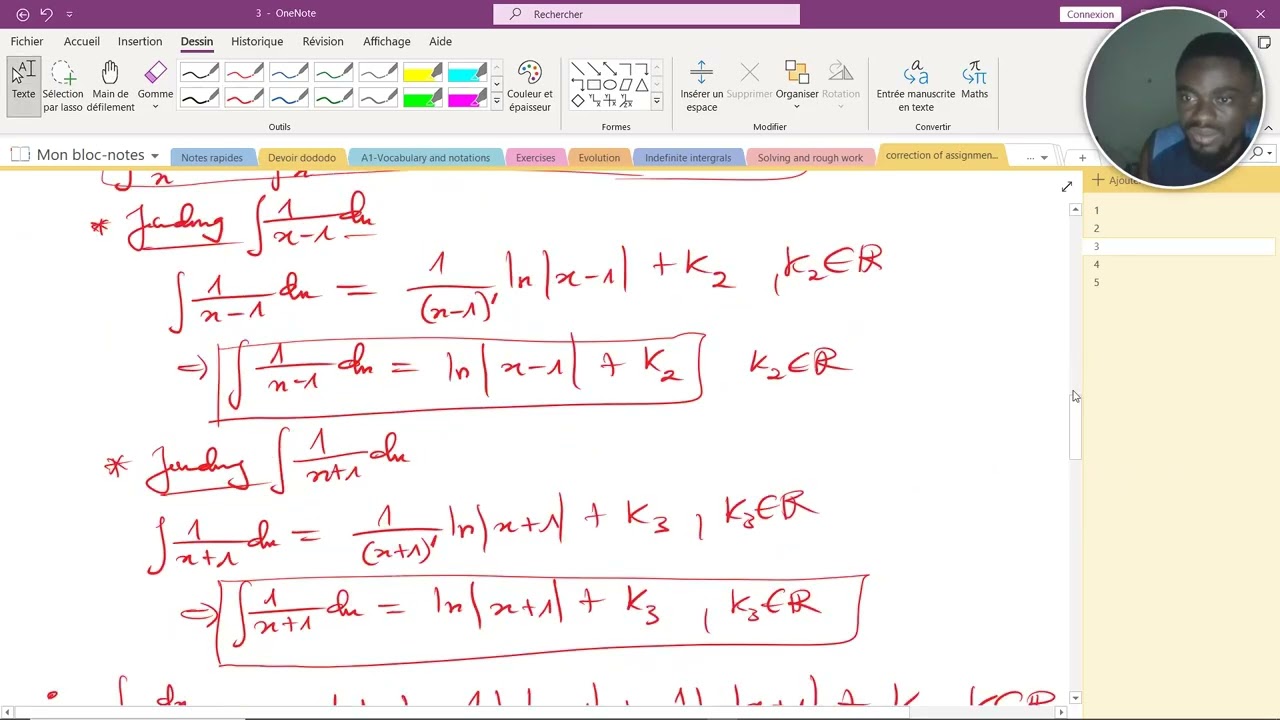 3 - OneNote
Rechercher
Connexion
Fichier Accueil Insertion Dessin Historique Révision Affichage Aide
Texte
Sélection par lasso
Main de défilement
Gomme
Couleur et épaisseur
Insérer un espace
Supprimer
Organiser
Rotation
Entrée manuscrite en texte
Maths
Outils Formes Modifier Convertir
Mon bloc-notes
Notes rapides Devoir dododo A1-Vocabulary and notations Exercises Evolution Indefinite intergrals Solving and rough work correction of assignmen...
1
2
3
4
5
* Finding ∫ 1/(x-1) dx
∫ 1/(x-1) dx = 1/(x-1)' ln|x-1| + K₂ , K₂∈ℝ
⇒ ∫ 1/(x-1) dx = ln|x-1| + K₂ K₂∈ℝ
* Finding ∫ 1/(x+1) dx
∫ 1/(x+1) dx = 1/(x+1)' ln|x+1| + K₃ , K₃∈ℝ
⇒ ∫ 1/(x+1) dx = ln|x+1| + K₃ , K₃∈ℝ